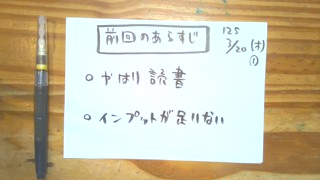 前回のあらすじ
125
3/20 (木)
①
○ やはり 読書
○ インプットが足りない